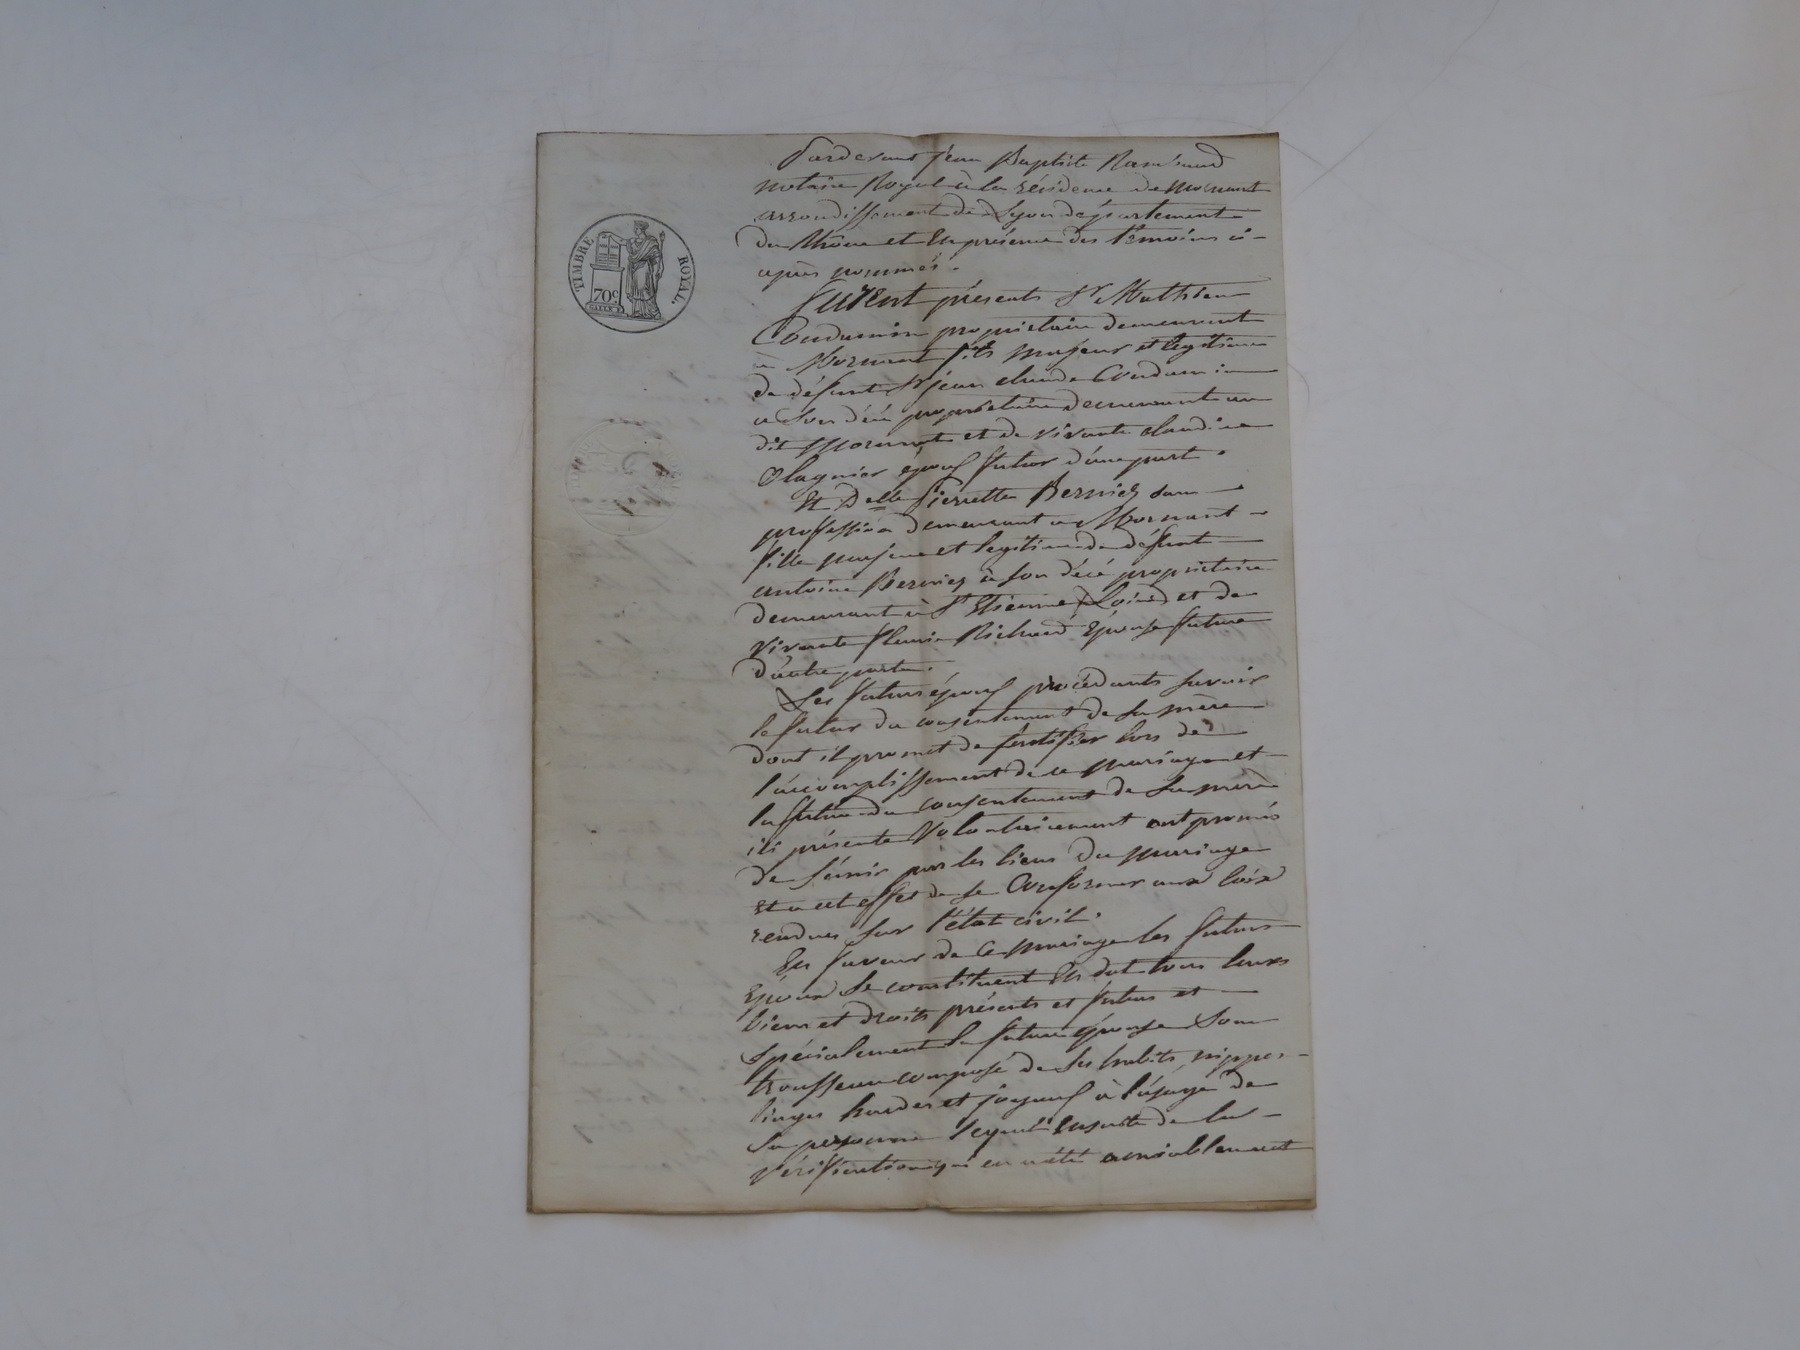 TIMBRE ROYAL.
70c
Pardevant jean Baptiste
notaire Royal à la résidence de Mornant
arrondissement de Lyon département
du Rhône et En présence des témoins ci-
après nommés.
furent présents Sr Mathieu
Condamin propriétaire demeurant
à Mornant fils majeur et légitime
de défunt Sr jean claude Condamin
a Son décé propriétaire demeurant au
dit Mornant et de vivante claudine
Olagnier époux futur d'une part.
Et Delle Pierrette Berniez sans
proffession demeurant a Mornant
fille majeure et legitime de défunt
antoine Berniez à son décé propriétaire
demeurant à St Etienne (Loire) et de
vivante fleurie Richard Epouse future
d'autre part.
Les futurs époux procédants savoir
le futur du consentement de Sa mère
dont il promet de justifier lors de
l'accomplissement de ce mariage et
la future du consentement de Sa mère
ici présente Volontairement ont promis
de s'unir par les liens du mariage
Et a cet effet de se Conformer aux loix
rendues sur l'état civil.
En faveur de Ce mariage les futurs
Epoux Se constituent En dot tous leurs
biens et droits présents et futurs et
Spécialement la future épouse Son
trousseau composé de Ses habits nippes
linges hardes et joyaux à l'usage de
Sa personne lequel Ensuite de la
vérification qui en a été amiablement